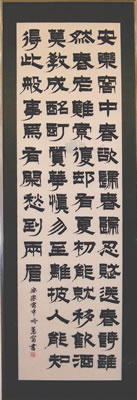 安樂窩中春欲歸春歸忍賦送春詩雖
然春老難牽復却有夏初能就移飲酒
莫教成酩酊賞華慎勿至離披人能知
得此般事焉有閑愁到兩眉
安樂窩中吟 書